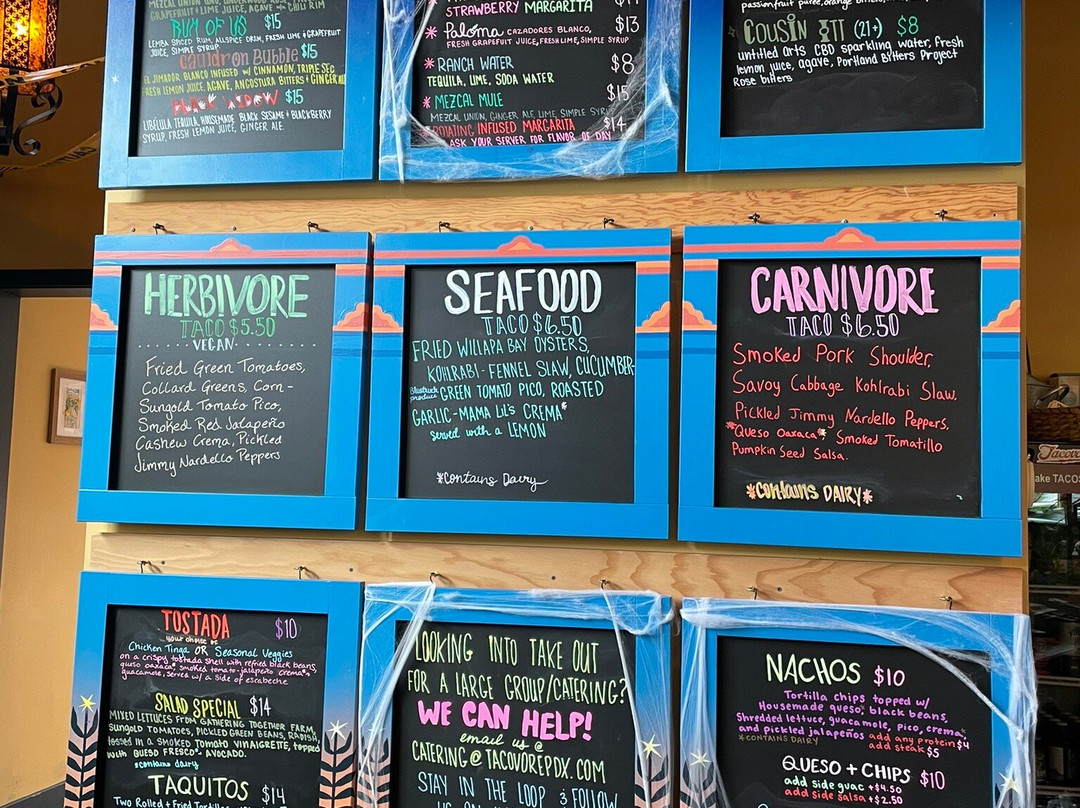 GRAPEFRUIT + LIME JUICE, AGAVE CHILI RIM
RUM OF US $15
LEMBA SPICED RUM, ALLSPICE DRAM, FRESH LIME & GRAPEFRUIT
JUICE, SIMPLE SYRUP
Cauldron Bubble $15
EL JIMADOR BLANCO INFUSED w/ CINNAMON, TRIPLE SEC
FRESH LEMON JUICE, AGAVE, ANGOSTURA BITTERS & GINGER
BLACK WIDOW $15
LIBÉLULA TEQUILA, HOUSEMADE BLACK SESAME & BLACKBERRY
SYRUP, FRESH LEMON JUICE, GINGER ALE.
STRAWBERRY MARGARITA
* Paloma CAZADORES BLANCO, $13
FRESH GRAPEFRUIT JUICE, FRESH LIME, SIMPLE SYRUP
* RANCH WATER $8
TEQUILA, LIME, SODA WATER
* MEZCAL MULE $15
MEZCAL UNION, GINGER ALE, LIME, SIMPLE SYRUP
ROTATING INFUSED MARGARITA $14
ASK YOUR SERVER FOR FLAVOR OF DAY
COUSIN ITT (21+) $8
untitled arts CBD sparkling water, fresh
lemon juice, agave, Portland Bitters Project
Rose bitters
HERBIVORE
TACO $5.50
VEGAN
Fried Green Tomatoes,
Collard Greens, Corn-
Sungold Tomato Pico,
Smoked Red Jalapeño
Cashew Crema, Pickled
Jimmy Nardello Peppers
SEAFOOD
TACO $6.50
FRIED WILLAPA BAY OYSTERS,
KOHLRABI-FENNEL SLAW, CUCUMBER-
GREEN TOMATO PICO, ROASTED
GARLIC-MAMA LIL'S CREMA*
served with a LEMON
*Contains Dairy
CARNIVORE
TACO $6.50
Smoked Pork Shoulder,
Savoy Cabbage Kohlrabi Slaw,
Pickled Jimmy Nardello Peppers,
*Queso Oaxaca*, Smoked Tomatillo
Pumpkin Seed Salsa.
*Contains DAIRY*
Tacovo
ake TACOS
TOSTADA $10
your choice of
Chicken Tinga OR Seasonal Veggies
on a crispy tostada shell with refried black beans,
queso oaxaca*, smoked tomato-jalapeño crema* +
guacamole, served w/ a side of escabeche
SALAD SPECIAL $14
MIXED LETTUCES FROM GATHERING TOGETHER FARM,
SUNGOLD TOMATOES, PICKLED GREEN BEANS, RADISH,
tossed in a SMOKED TOMATO VINAIGRETTE, topped
with QUESO FRESCO* + AVOCADO.
*contains dairy
TAQUITOS $14
Two Rolled + Fried Tortillas
LOOKING INTO TAKE OUT
FOR A LARGE GROUP/CATERING?
WE CAN HELP!
email us @
CATERING@TACOVOREPDX.COM
STAY IN THE LOOP & FOLLOW
NACHOS $10
Tortilla chips topped w/
Housemade queso*, black beans,
Shredded lettuce, guacamole, pico, crema*
and pickled jalapeños add any protein $4
*CONTAINS DAIRY add steak $5
QUESO + CHIPS $10
add side guac + $4.50
add side salsa + $2.50